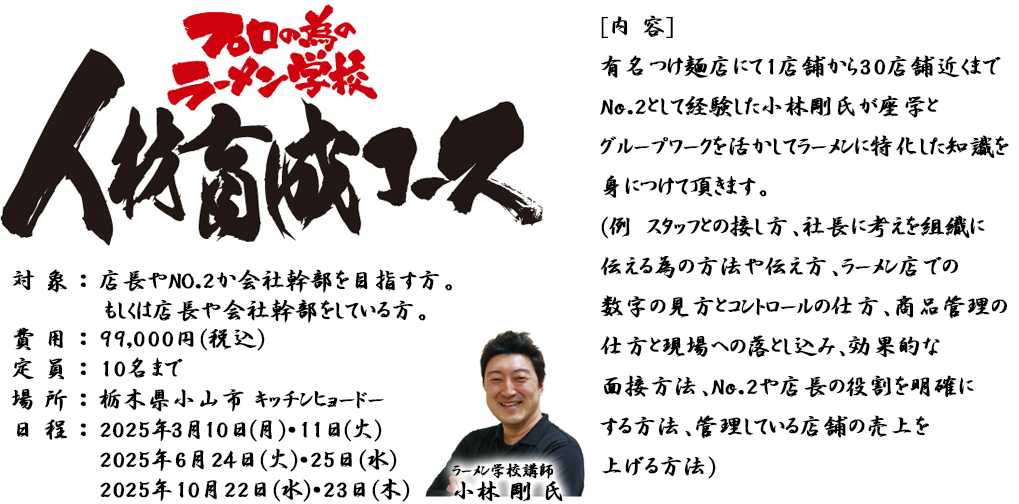 プロの為の
ラーメン学校
人材育成コース
対 象 : 店長やNO.2か会社幹部を目指す方。
もしくは店長や会社幹部をしている方。
費 用 : 99,000円(税込)
定 員 : 10名まで
場 所 : 栃木県小山市 キッチンヒョードー
日 程 : 2025年3月10日(月)・11日(火)
2025年6月24日(火)・25日(水)
2025年10月22日(水)・23日(木)
ラーメン学校講師
小林 剛 氏
[内 容]
有名つけ麺店にて1店舗から30店舗近くまで
No.2として経験した小林剛氏が座学と
グループワークを活かしてラーメンに特化した知識を
身につけて頂きます。
(例 スタッフとの接し方、社長に考えを組織に
伝える為の方法や伝え方、ラーメン店での
数字の見方とコントロールの仕方、商品管理の
仕方と現場への落とし込み、効果的な
面接方法、No.2や店長の役割を明確に
する方法、管理している店舗の売上を
上げる方法)